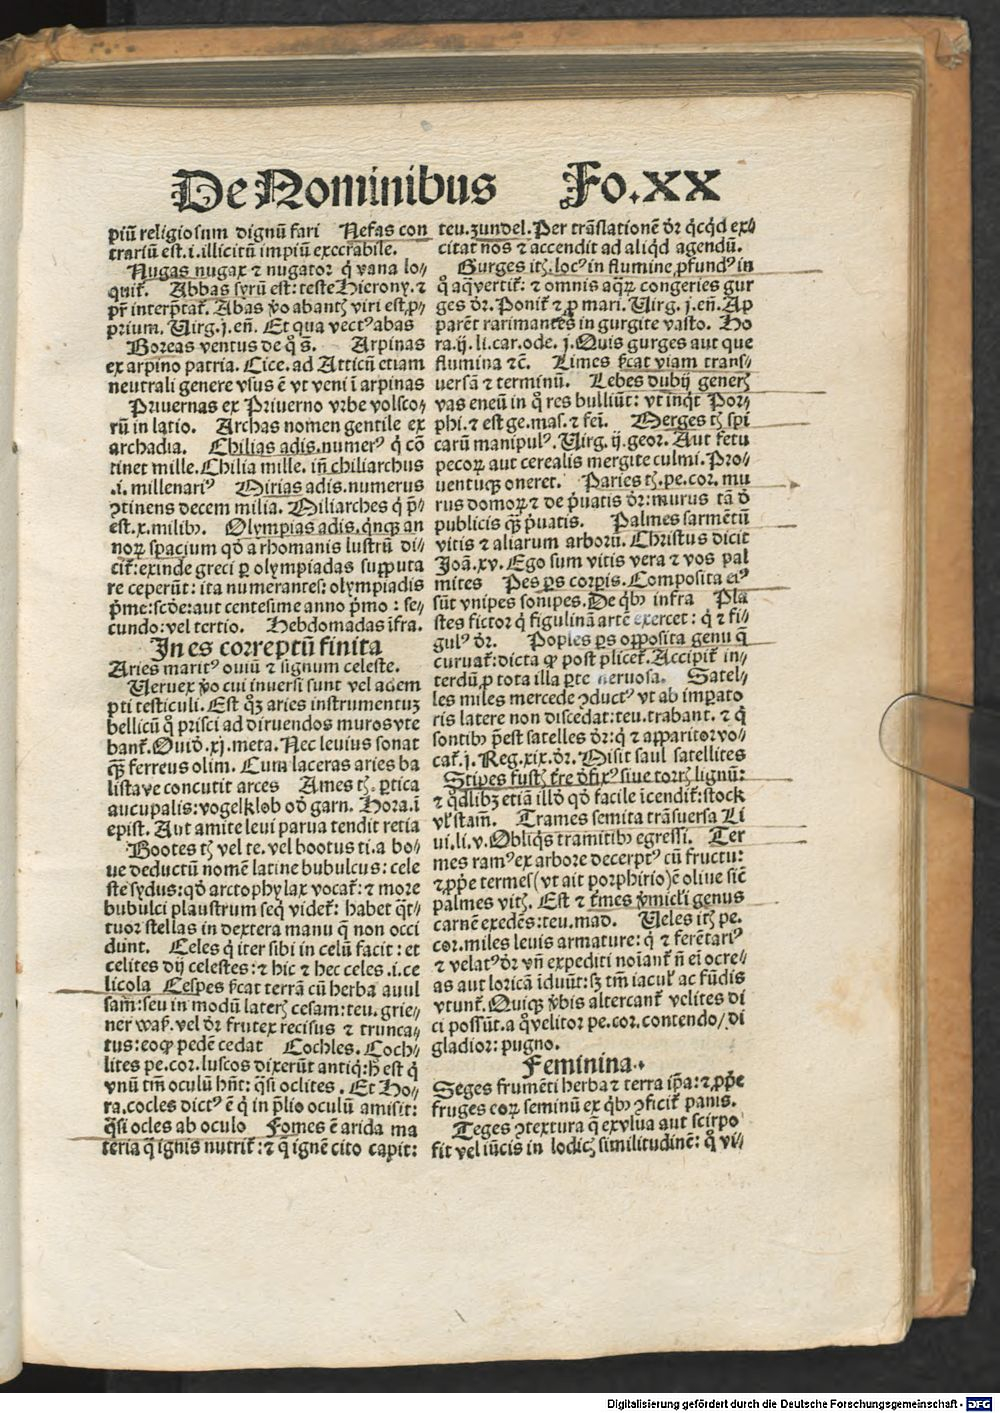 De Nominibus Fo.XX
piū religiosum dignū fari Nefas con
trariū est.i.illicitū impiū execrabile.
Nugas nugax ⁊ nugator q̇ vana lo⸗
quit᷒. Abbas syrū est: teste Hierony. ⁊
pr̄ interp̄tat᷒. Abas ꝟo abantꝫ viri est ꝓ⸗
prium. Virg.j.en̄. Et qua vectꝰ abas
Boreas ventus de qͦ s̄. Arpinas
ex arpino patria. Cice. ad Atticū etiam
neutrali genere vsus ē vt veni ī arpinas
Priuernas ex Priuerno vrbe volsco⸗
rū in latio. Archas nomen gentile ex
archadia. Chilias adis.numerꝰ q̇ cō
tinet mille. Chilia mille. in̄ chiliarchus
.i. millenariꝰ Mirias adis.numerus
ꝯtinens decem milia. Miliarches q̇ p̄
est.x.milibꝫ. Olympias adis.qͥnqꝫ an
noꝝ spacium qd̄ a rhomanis lustrū di⸗
cit᷒: exinde greci ꝑ olympiadas supputa
re ceperūt: ita numerantes: olympiadis
pͥme: scd̄e: aut centesime anno pͥmo : se⸗
cundo: vel tertio. Hebdomadas īfra.
In es correptū finita
Aries maritꝰ ouiū ⁊ signum celeste.
Veruex ꝟo cui inuersi sunt vel adem
pti testiculi. Est qͦꝫ aries instrumentuꝫ
bellicū qͦ prisci ad diruendos muros vte
bant᷒. Ouid̄.xj.meta. Nec leuius sonat
qꝫ̄ ferreus olim. Cum laceras aries ba
listaue concutit arces Ames tꝫ. ꝑtica
aucupalis: vogelklob od̄ garn. Hora.ī
epist. Aut amite leui parua tendit retia
Bootes tꝫ vel te. vel bootus ti.a bo⸗
ue deductū nomē latine bubulcus: cele
ste sydus: qd̄ arctophylax vocat᷒: ⁊ more
bubulci plaustrum seq̇ videt᷒: habet qͣt⸗
tuor stellas in dextera manu q̄ non occi
dunt. Celes q̇ iter sibi in celū facit : et
celites dij celestes: ⁊ hic ⁊ hec celes .i. ce
licola Cespes ſ̄cat terrā cū herba auul
sam: seu in modū laterꝫ cesam: teu. grie⸗
ner waß. vel dr̄ frutex recisus ⁊ trunca⸗
tus: eoqꝫ pedē cedat Cochles. Coch⸗
lites pe.cor.luscos dixerūt antiqͥ: hͦ est q̇
vnū tm̄ oculū hn̄t: qͣsi oclites . Et Ho⸗
ra.cocles dictꝰ ē q̇ in p̄lio oculū amisit:
qͣsi ocles ab oculo Fomes ē arida ma
teria q̄ ignis nutrit᷒: ⁊ q̄ ignē cito capit:
teu.zundel. Per trāslationē dr̄ qͥcqͥd exi⸗
citat nōs ⁊ accendit ad aliqͥd agendū.
Gurges itꝫ.locꝰ in flumine ꝓfundꝰ in
qͦ aq̄ vertit᷒: ⁊ omnis aqͣꝝ congeries gur
ges dr̄. Ponit᷒ ⁊ ꝓ mari. Virg. j.en̄. Ap
parēt rari nantes in gurgite vasto. Ho
ra.ij.li.car.ode. j. Quis gurges aut que
flumina ⁊c̄. Limes ſ̄cat viam trans⸗
uersā ⁊ terminū. Lebes dubij generꝫ
vas eneū in qͦ res bulliūt: vt inqͥt Por⸗
phi. ⁊ est ge.mas. ⁊ fei. Merges tꝫ spi
carū manipulꝰ. Virg.ij.geor. Aut fetu
pecoꝝ aut cerealis mergite culmi. Pro⸗
uentuqꝫ oneret. Paries tꝫ.pe.cor. mu
rus domoꝝ ⁊ de pͥuatis dr̄: murus tā d̄
publicis qꝫ̄ pͥuatis. Palmes sarmētū
vitis ⁊ aliarum arborū. Christus dicit
Joā.xv. Ego sum vitis vera ⁊ vos pal
mites Pes ꝑs corꝑis. Composita eiꝰ
sūt vnipes sonipes. De qͥbꝫ infra Pla
stes fictor q̇ figulinā artē exercet: q̇ ⁊ fi⸗
gulꝰ dr̄. Poples ꝑs opposita genu q̄
curuat᷒: dicta ꝙ post plicet᷒. Accipit᷒ in⸗
terdū ꝓ tota illa ꝑte neruosa. Satel⸗
les miles mercede ꝯductꝰ vt ab imꝑato
ris latere non discedat: teu.trabant. ⁊ q̇
sontibꝫ p̄est satelles dr̄: q̇ ⁊ apparitor vo⸗
cat᷒. j. Reg.xix.dr̄. Misit saul satellites
Stipes fustꝫ t̄re d̄fixꝰ siue torrꝫ lignū:
⁊ qͦdlibꝫ etiā illd̄ qd̄ facile īcendit᷒: stock
vl̓ stam̄. Trames semita trāsuersa Li
ui.li.v. Obliqͥs tramitibꝫ egressi. Ter
mes ramꝰ ex arbore decerptꝰ cū fructu:
⁊ ꝓpͥe termes (vt ait porphirio) ē oliue sic̄
palmes vitꝫ. Est ⁊ t̄mes ꝟmicl̓i genus
carnē exedēs: teu.mad. Veles itꝫ pe.
cor.miles leuis armature: q̇ ⁊ ferētariꝰ
⁊ velatꝰ dr̄ vn̄ expediti noīant᷒ n̄ ei ocre⸗
as aut loricā īduūt: sꝫ tm̄ iacul̓ ac fūdis
vtunt᷒. Quiqꝫ ꝟbis altercant᷒ velites di
ci possūt. a qͦ velitor pe.cor.contendo/ di
gladior: pugno.
Feminina.
Seges frumēti herba ⁊ terra ip̄a: ⁊ ꝓpͥe
fruges eoꝝ seminū ex qͥbꝫ ꝯficit᷒ panis.
Teges ꝯtextura q̄ ex vlua aut scirpo
fit vel iūcis in lodicꝫ similitudinē: qͦ vi⸗
Digitalisierung gefördert durch die Deutsche Forschungsgemeinschaft - DFG